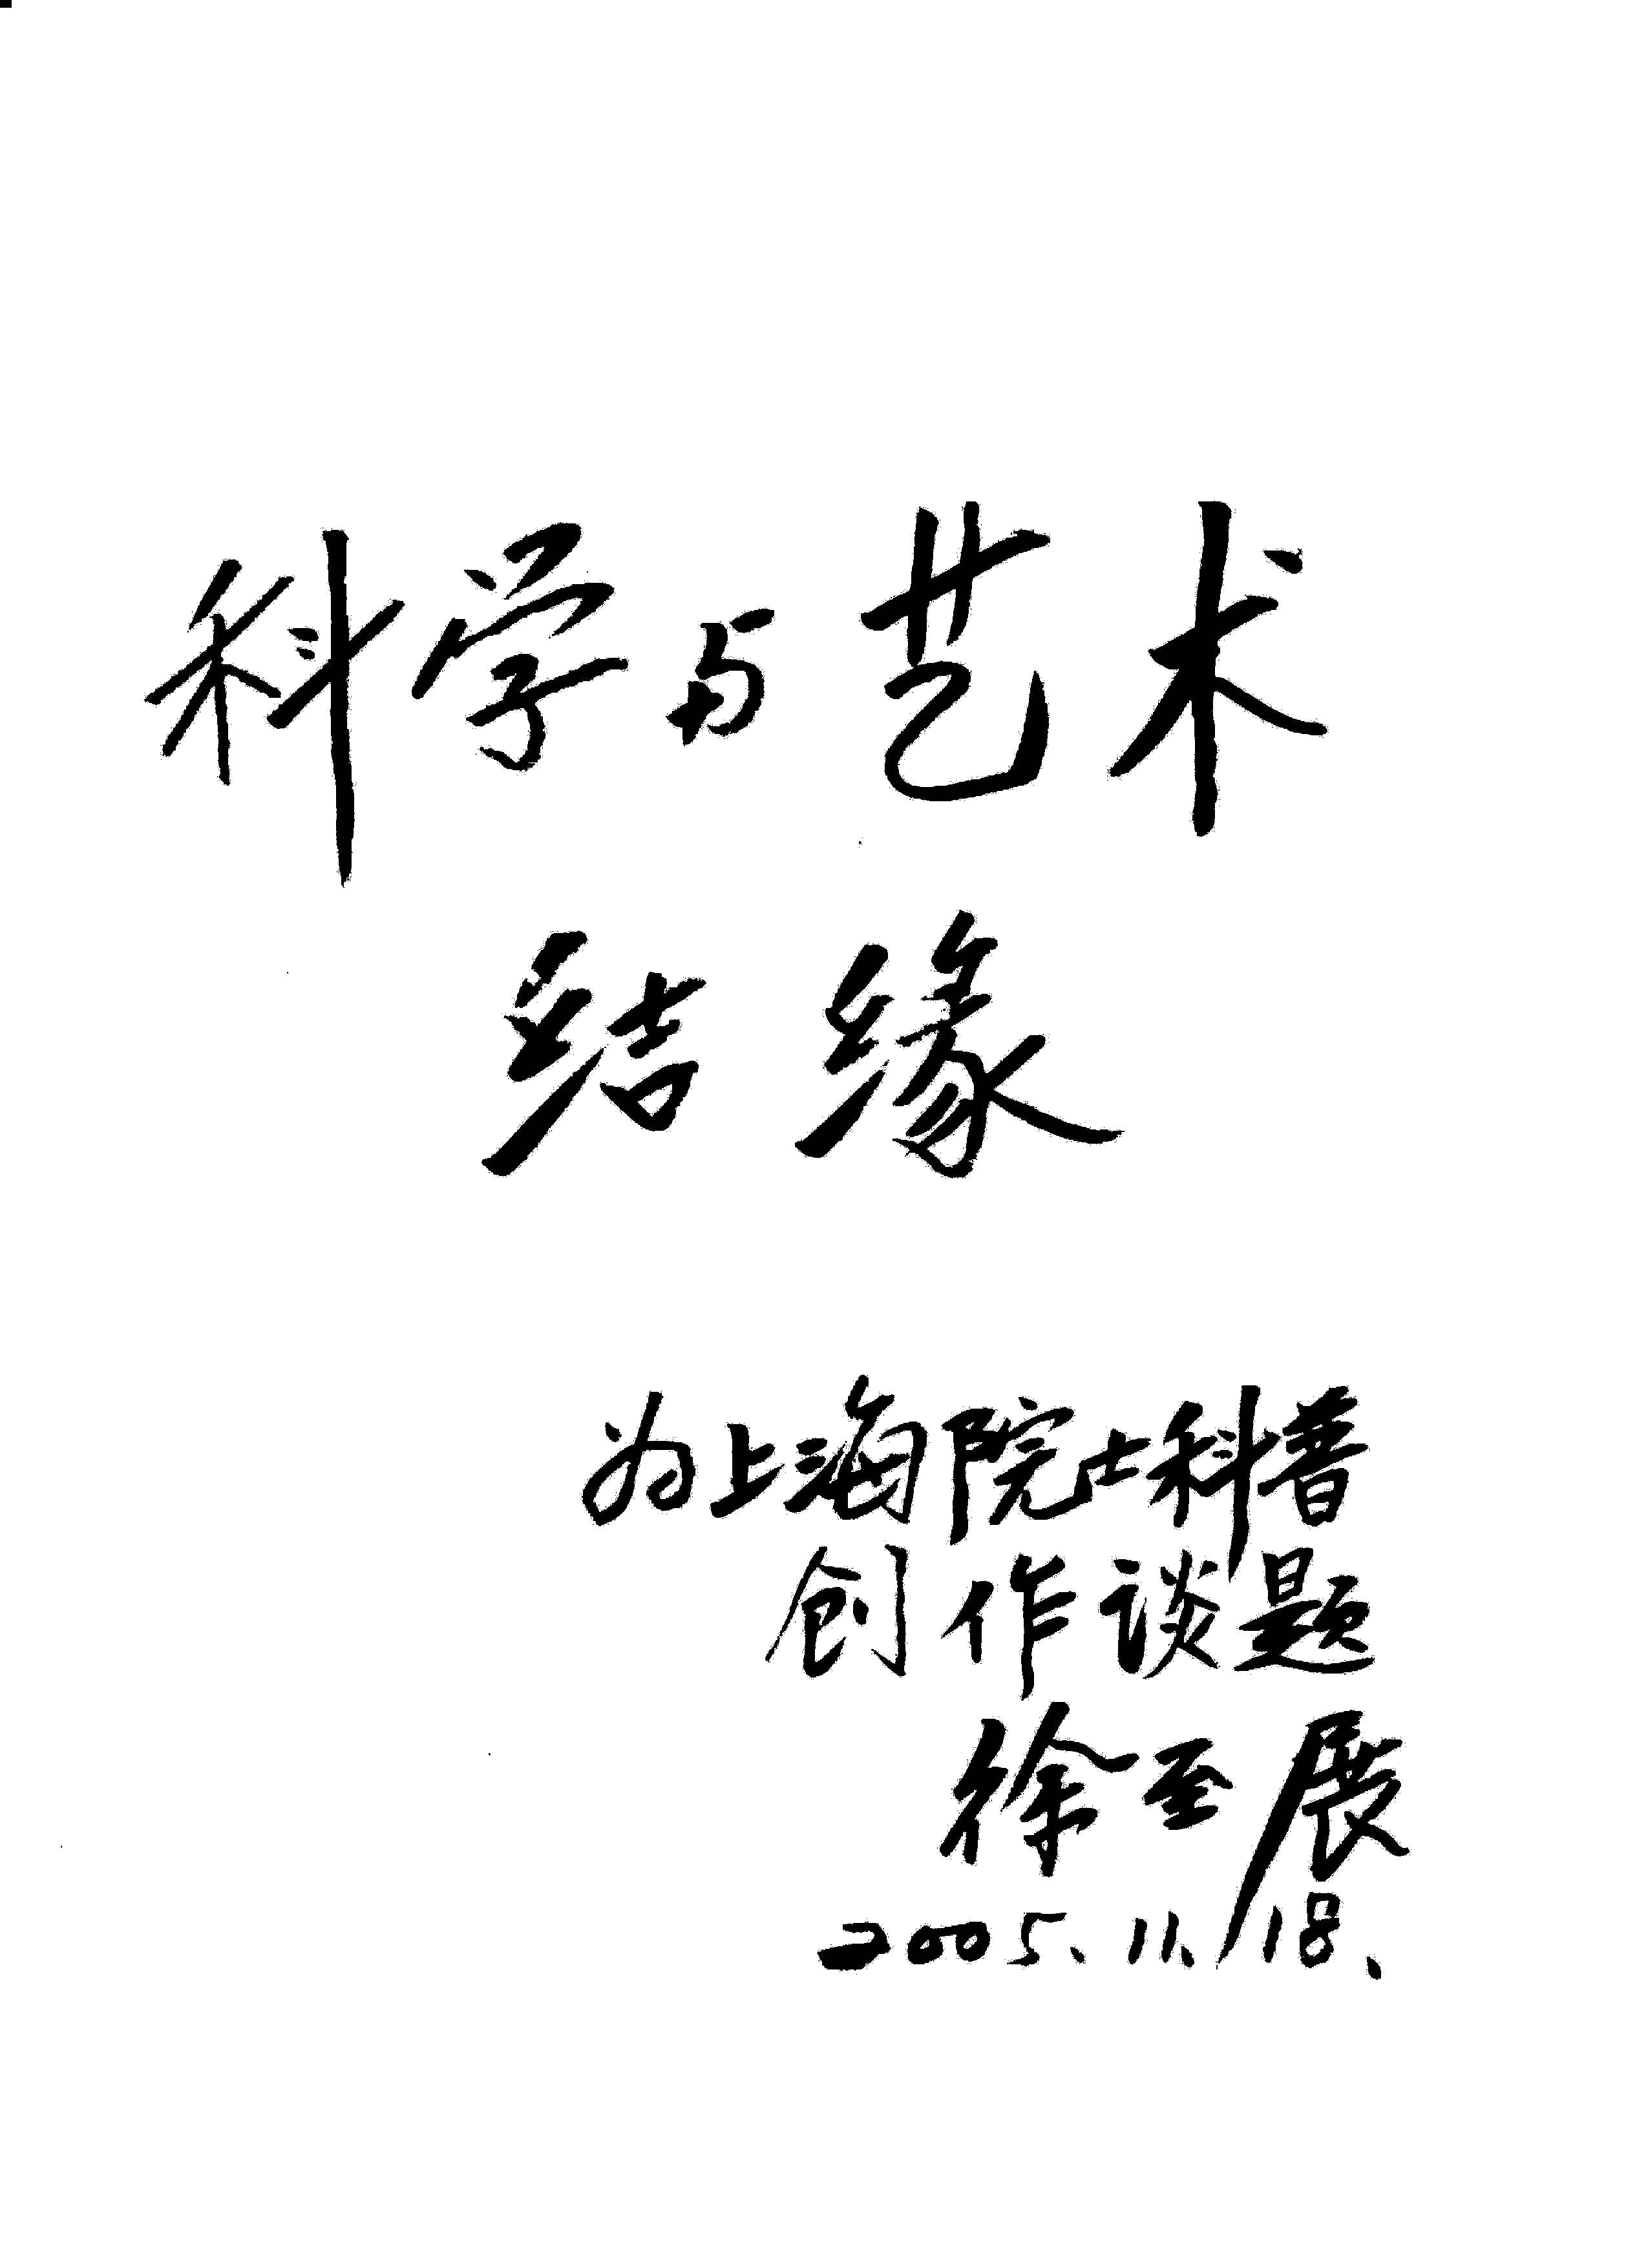 科学与艺术
结缘
为上海院士科普
创作谈题
徐至展
2005.11.18.